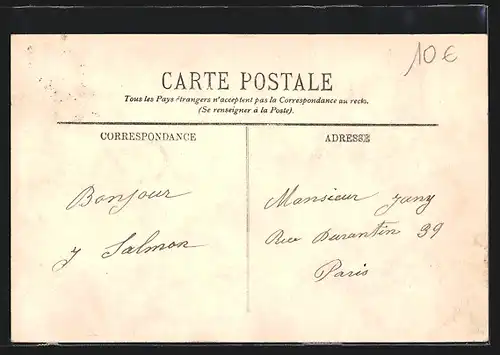 10€
CARTE POSTALE
Tous les Pays étrangers n'acceptent pas la Correspondance au recto.
(Se renseigner à la Poste).
CORRESPONDANCE
ADRESSE
Bonjour
y Salmon
Monsieur Jany
Rue Durantin 39
Paris